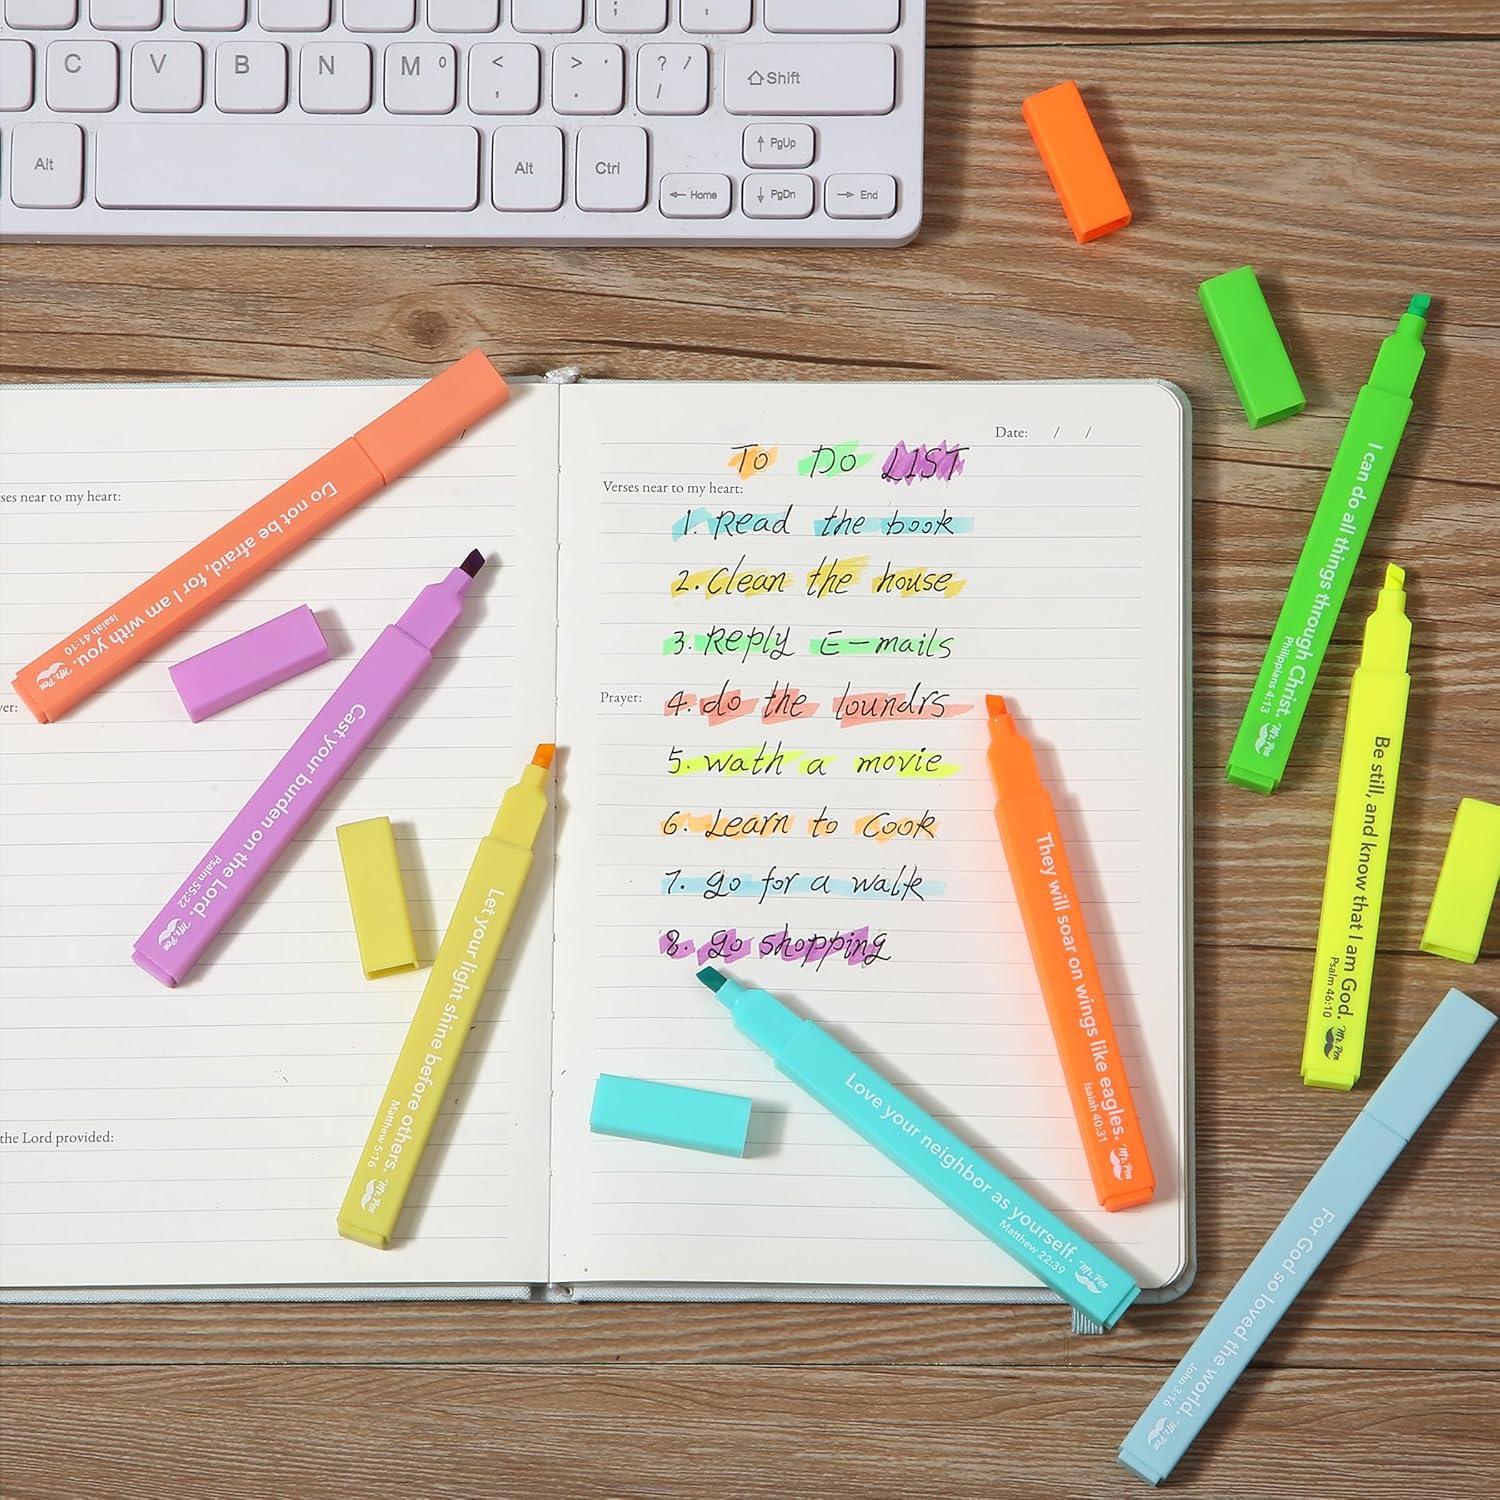 C V B N M 0 < , > . ? / / Shift
Alt Alt Ctrl PgUp
Home PgDn End
Date: / /
TO DO LIST
Verses near to my heart:
1. Read the book
2. Clean the house
3. Reply E-mails
Prayer:
4. do the loundrs
5. wath a movie
6. Learn to Cook
7. go for a walk
8. go shopping
ses near to my heart:
yer:
the Lord provided:
Do not be afraid, for I am with you.
Isaiah 41:10
Mr. Pen
Cast your burden on the Lord.
Psalm 55:22
Mr. Pen
Let your light shine before others.
Matthew 5:16
Mr. Pen
Love your neighbor as yourself.
Matthew 22:39
Mr. Pen
They will soar on wings like eagles.
Isaiah 40:31
Mr. Pen
I can do all things through Christ.
Philippians 4:13
Mr. Pen
Be still, and know that I am God.
Psalm 46:10
Mr. Pen
For God so loved the world.
John 3:16
Mr. Pen